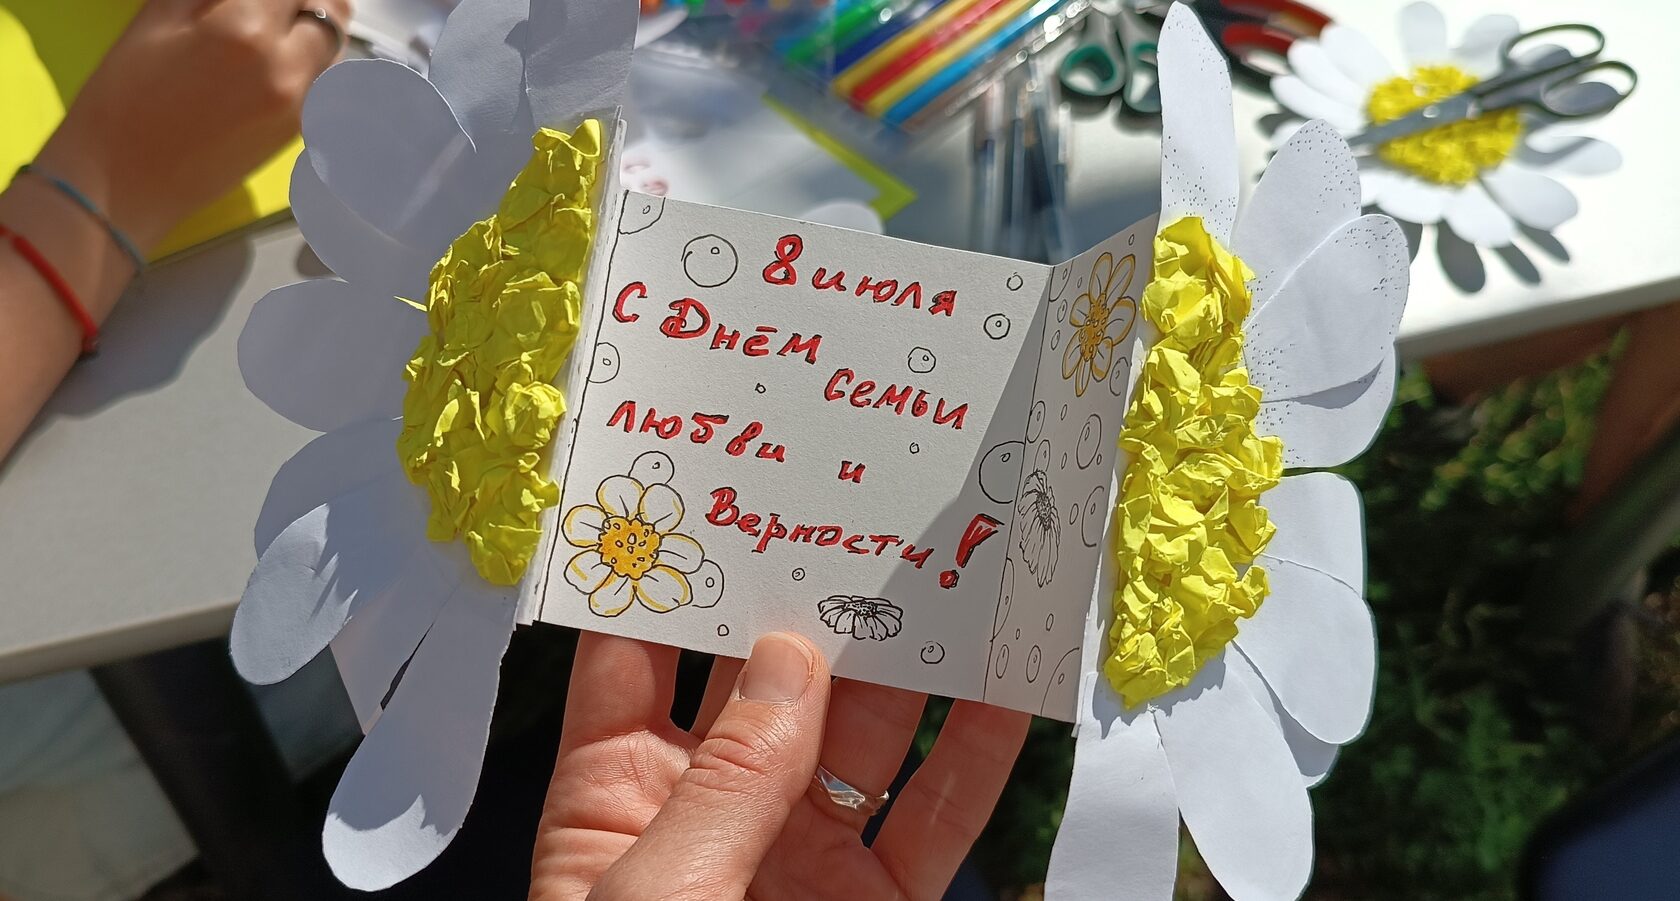 8 июля
С Днём
семьи
любви и
Верности!